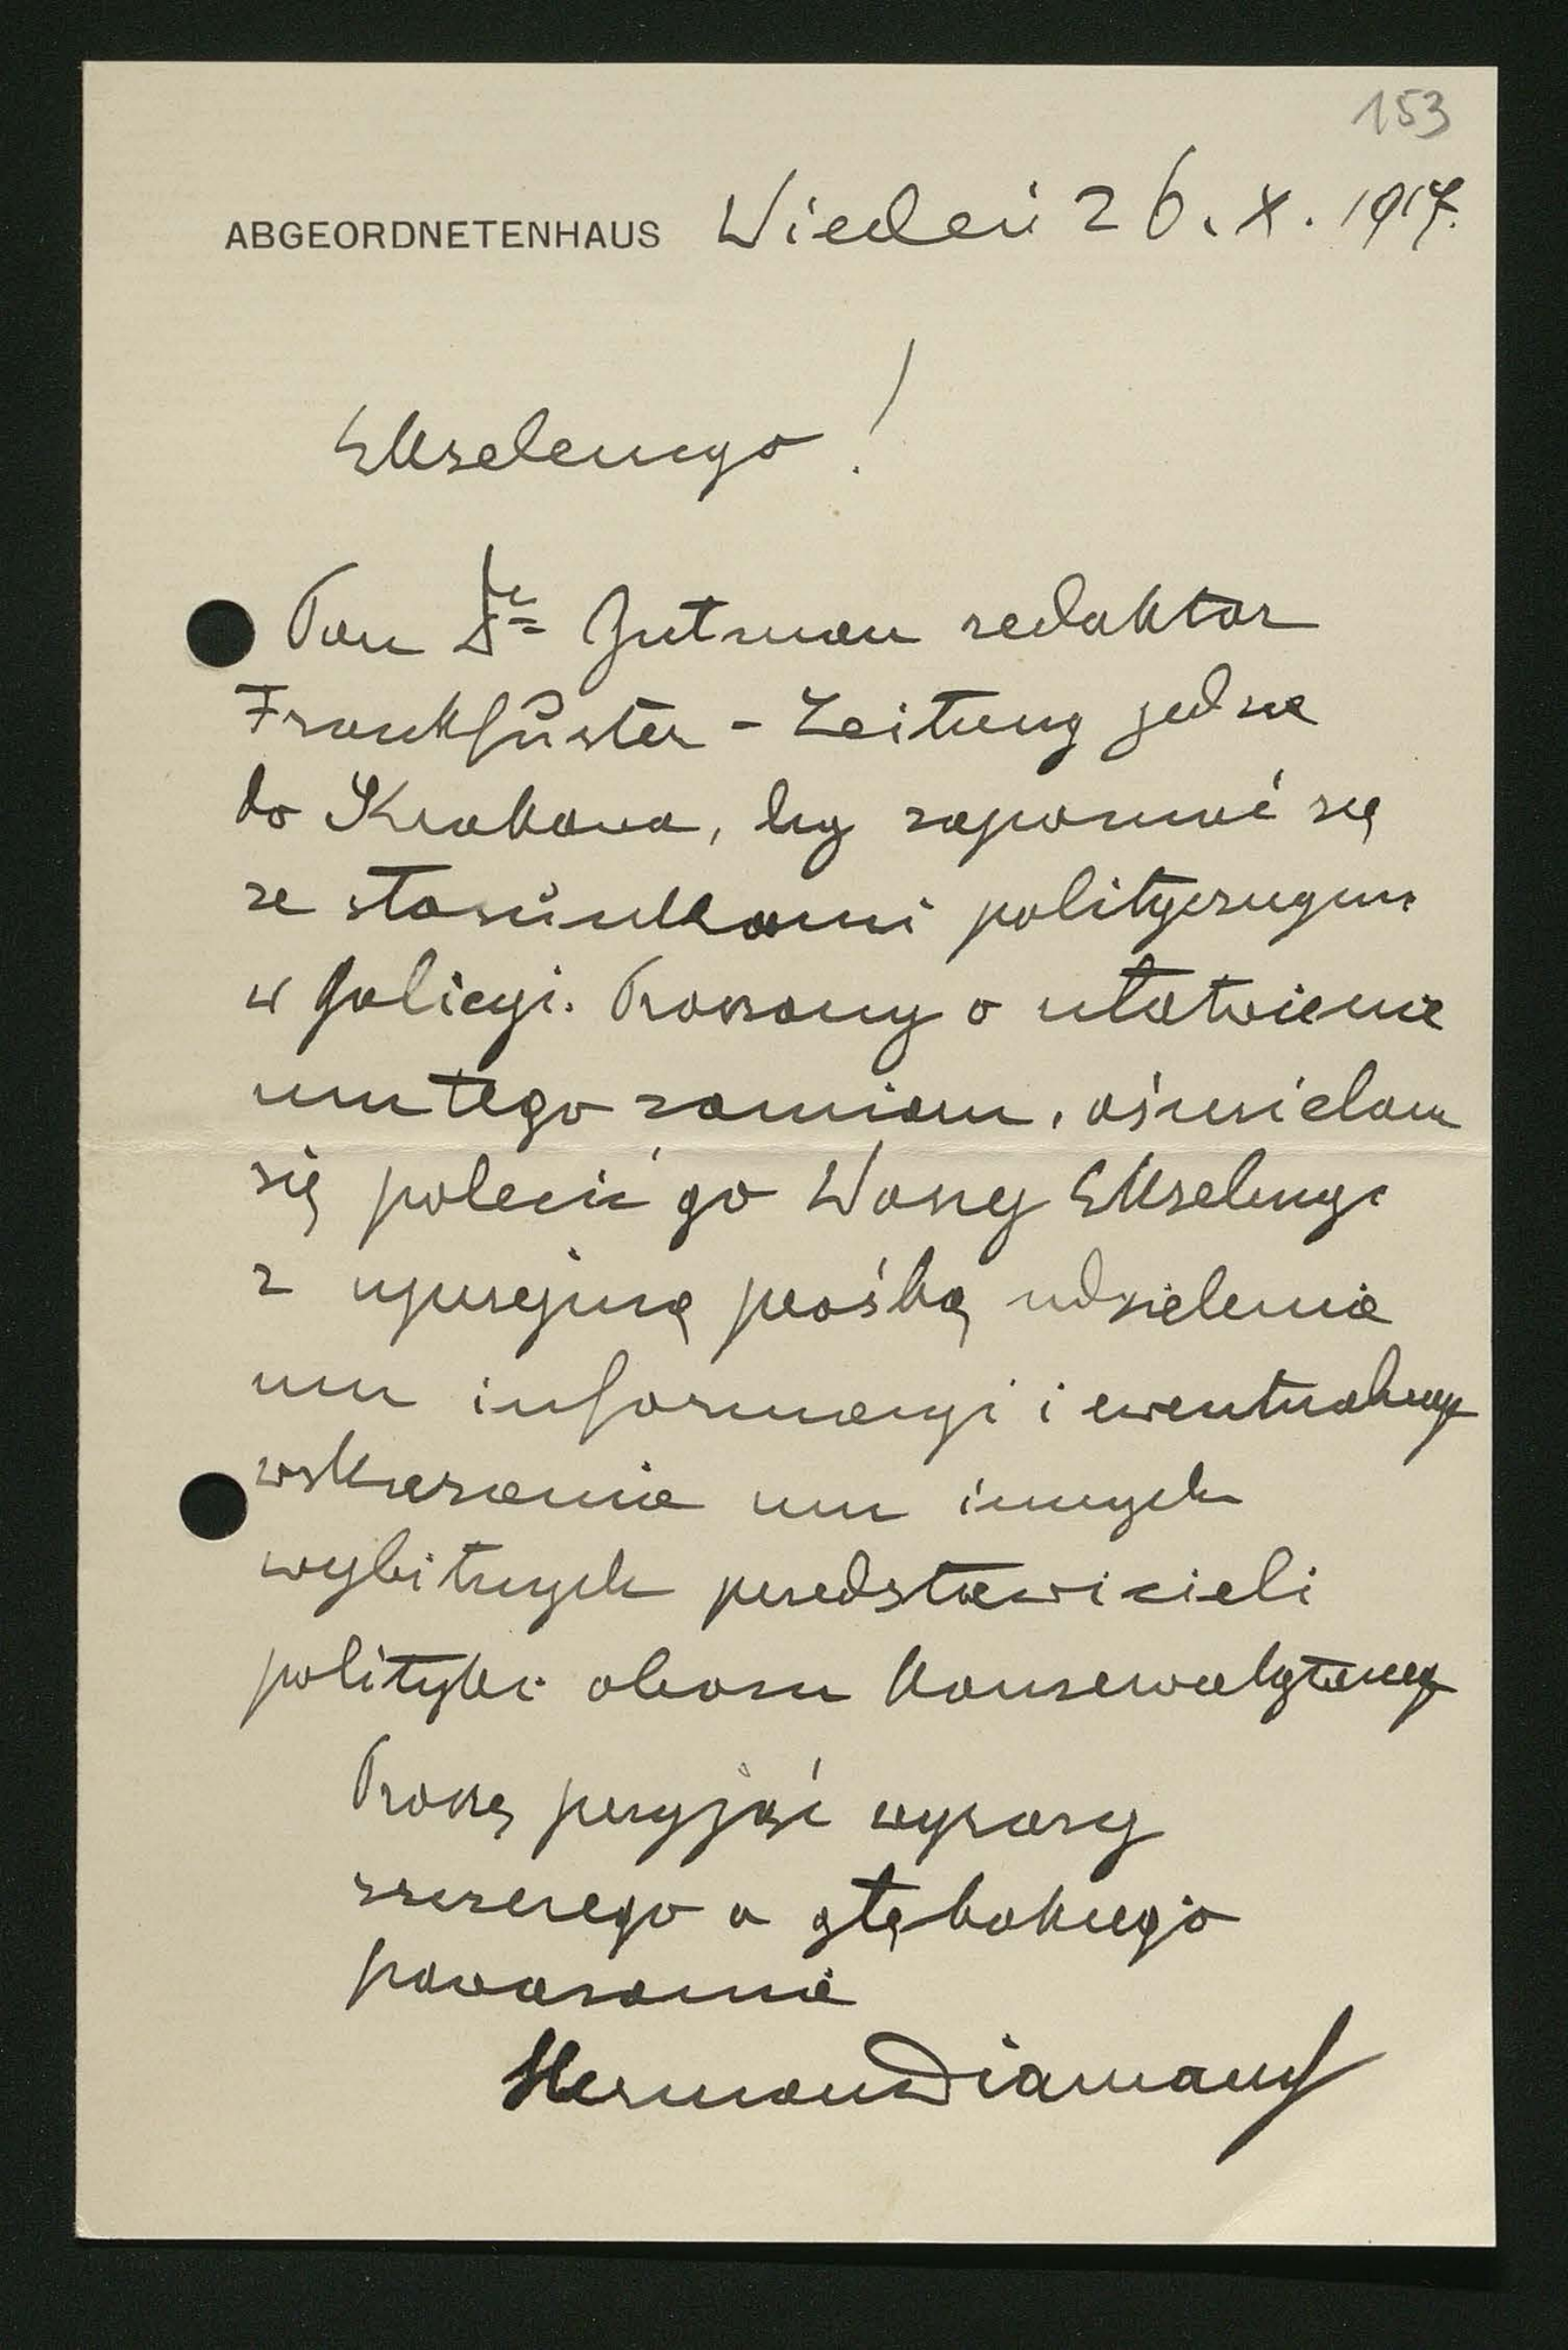 153
ABGEORDNETENHAUS Wiedeń 26. X. 1917.
Ekselencyo!
Pan Dr Gutman redaktor
Frankfurter - Zeitung jedzie
do Krakowa, by zapoznać się
ze stosunkami politycznymi
w Galicyi. Proszony o ułatwienie
mu tego zamiaru, ośmielam
się polecić go Waszej Ekselencyi
z uprzejmą prośbą udzielenia
mu informacyi i ewentualnego
wskazania mu innych
wybitnych przedstawicieli
polityki obozu konserwatywnego
Proszę przyjąć wyrazy
szczerego a głębokiego
poważania
Herman Diamand